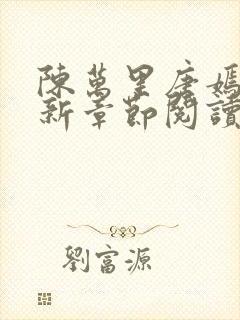 陳萬里唐嫣
新章節閱讀
劉富源